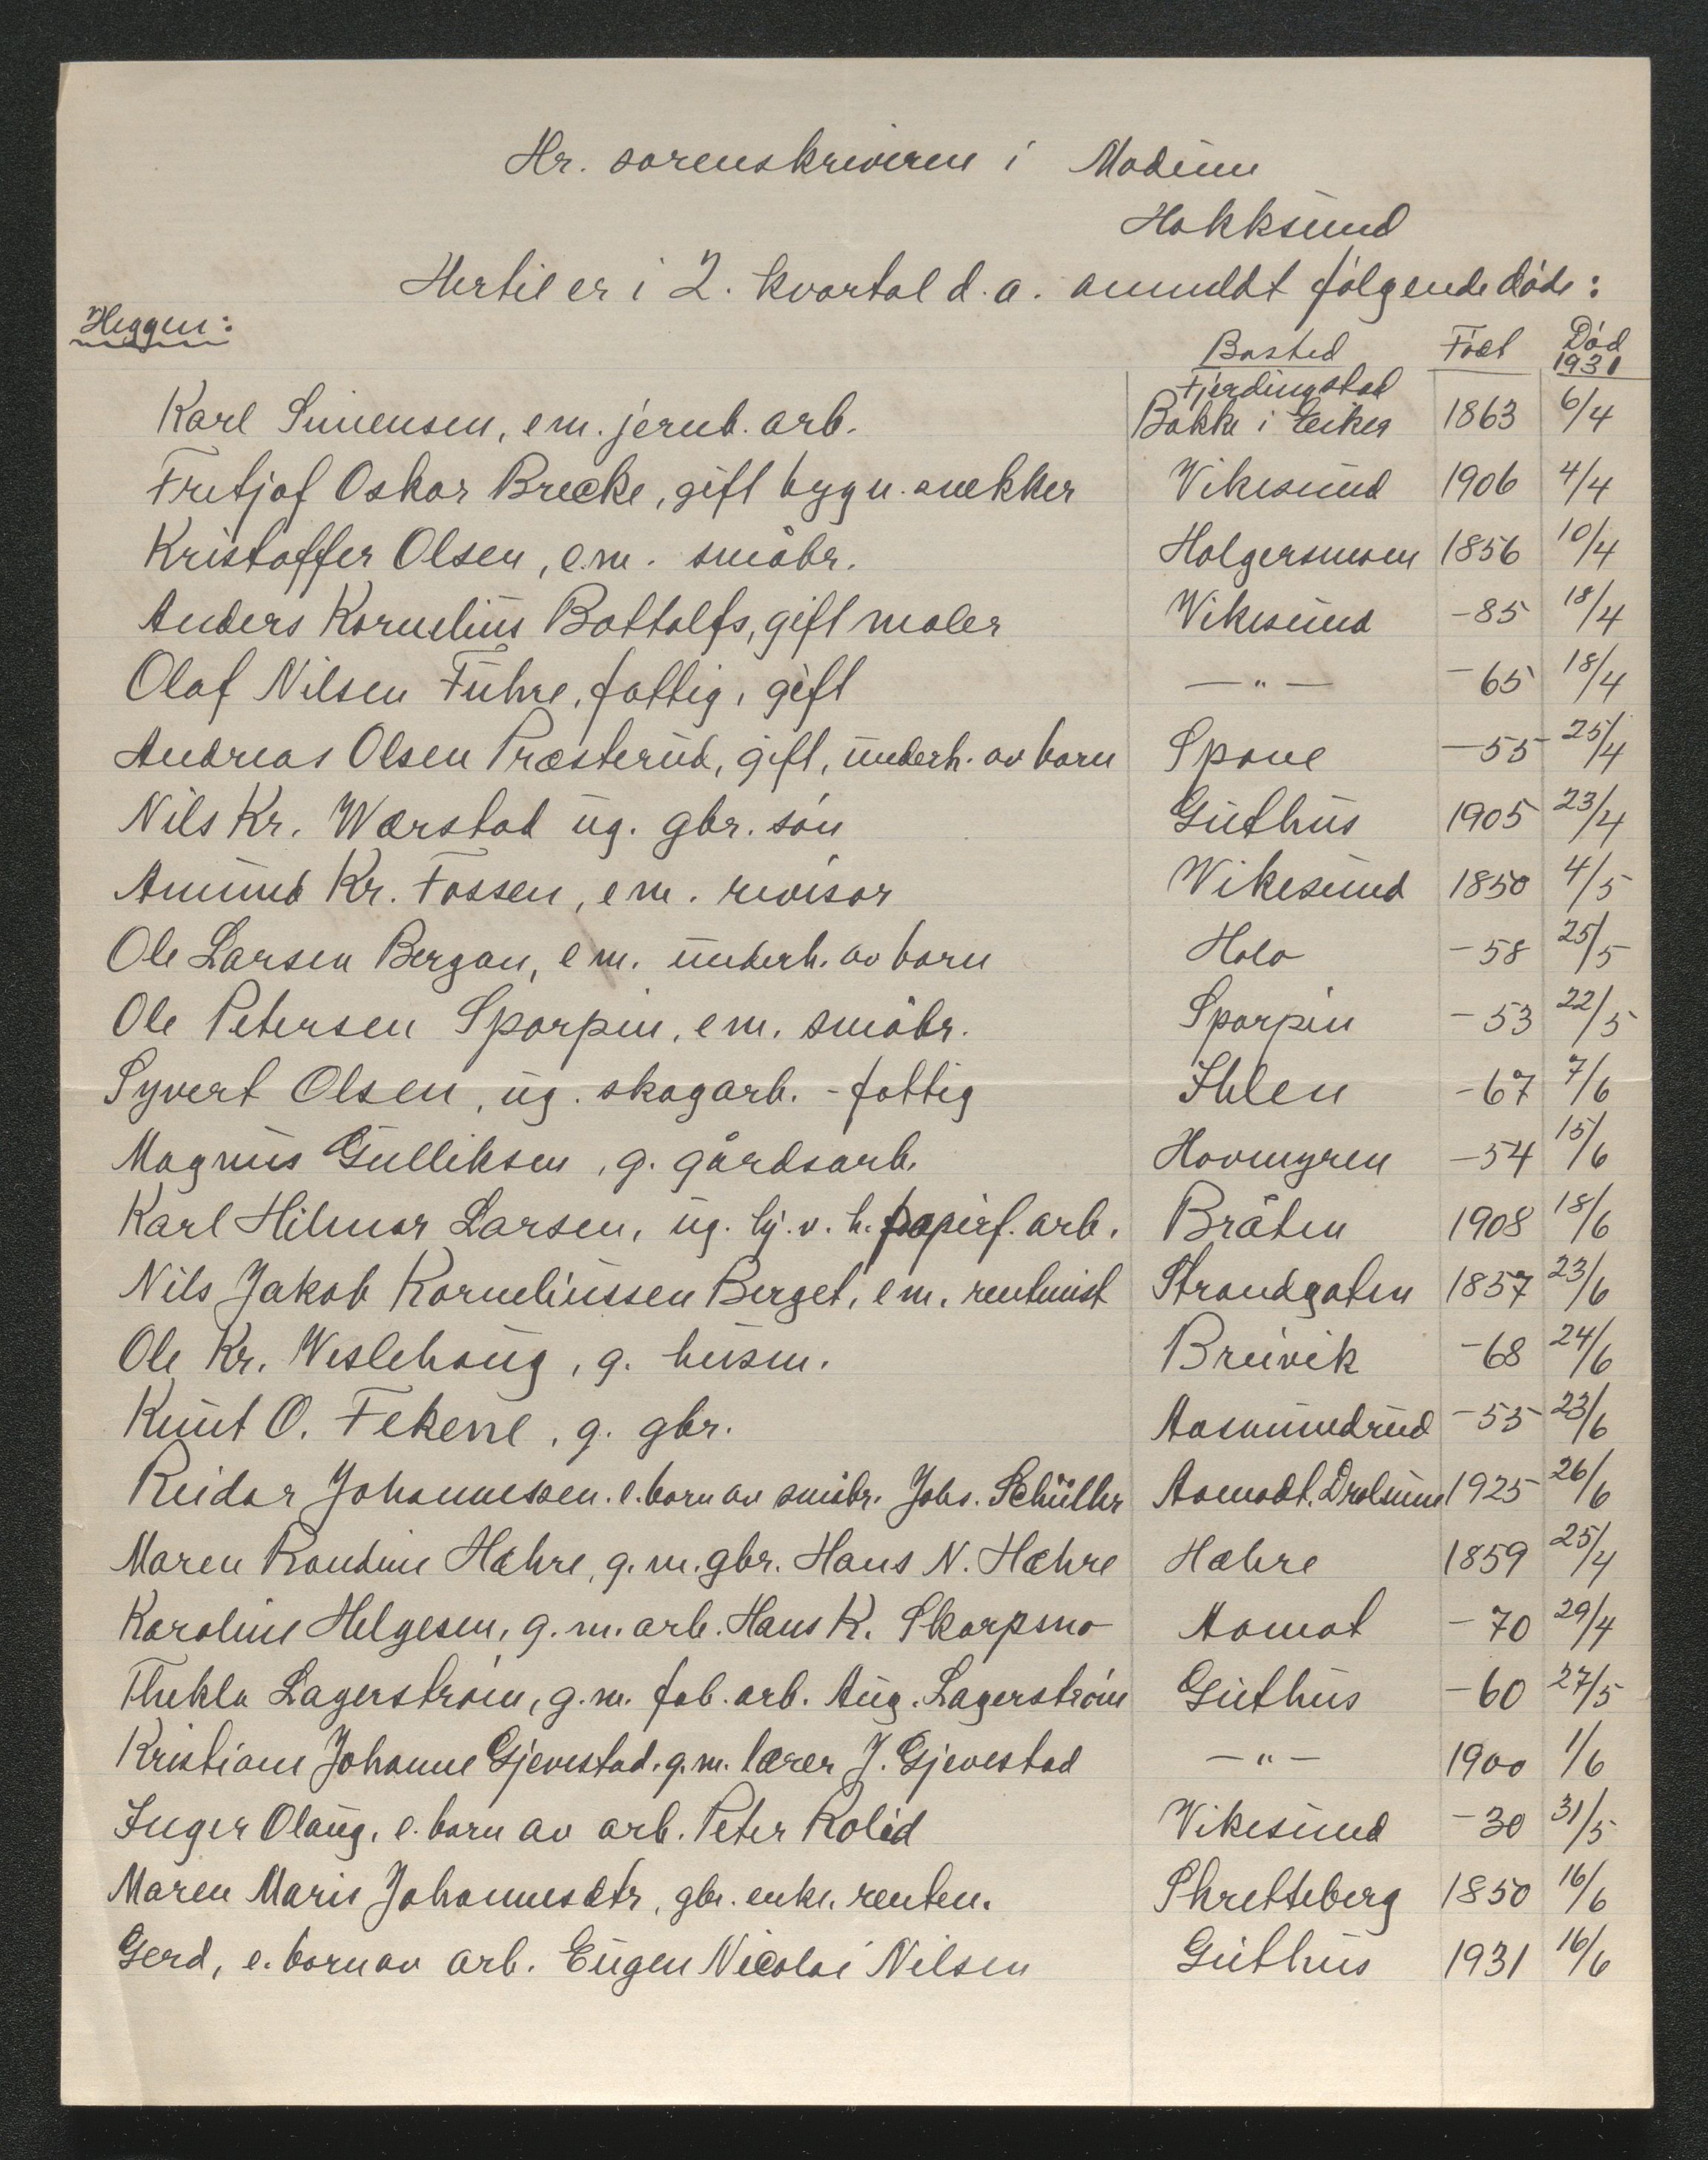 Hr. sorenskriveren i Modum
Hokksund
Hertil er i 2. kvartal d.a. anmeldt følgende døde:
Heggen:
Bosted Født Død 1931
Karl Simensen, em. jernb. arb. Fjerdingstad Bakke i Eiker 1863 6/4
Fritjof Oskar Brecke, gift bygn. snekker Vikesund 1906 4/4
Kristoffer Olsen, em. småbr. Holgersmoen 1856 10/4
Anders Kornelius Bottolfs, gift maler Vikesund -85 18/4
Olaf Nilsen Fuhre, fattig, gift —"— -65 18/4
Andreas Olsen Præsterud, gift, underh. av barn Spone -55 25/4
Nils Kr. Wærstad ug. gbr. søn Guthus 1905 23/4
Amund Kr. Fossen, em. revisor Vikesund 1850 4/5
Ole Larsen Bergan, em. underh. av barn Holo -58 25/5
Ole Petersen Sparpin, em. småbr. Sparpin -53 22/5
Syvert Olsen, ug. skogarb. - fattig Ihlen -67 7/6
Magnus Gulliksen, g. gårdsarb. Hovmyren -54 15/6
Karl Hilmar Larsen, ug. hj. v. h. papirf. arb. Bråten 1908 18/6
Nils Jakob Korneliussen Berget, em. rentenist Strandgaten 1857 23/6
Ole Kr. Weslehaug, g. husm. Breivik -68 24/6
Knut O. Fekene, g. gbr. Aasmundrud -55 23/6
Reidar Johannessen. e. barn av småbr. Johs. Schüller Aamodt. Drolsum 1925 26/6
Maren Randine Hæhre, g.m. gbr. Hans N. Hæhre Hæhre 1859 25/4
Karoline Helgesen, g.m. arb. Hans K. Skarpsno Aamot -70 29/4
Thekla Lagerstrøm, g.m. fab. arb. Aug. Lagerstrøm Guthus -60 27/5
Kristiane Johanne Gjevestad. g.m. lærer J. Gjevestad —"— 1900 1/6
Inger Olaug, e. barn av arb. Peter Rolid Vikesund -30 31/5
Maren Marie Johannesdtr, gbr. enke. renten. Skretteberg 1850 16/6
Gerd, e. barn av arb. Eugen Nicolai Nilsen Guthus 1931 16/6